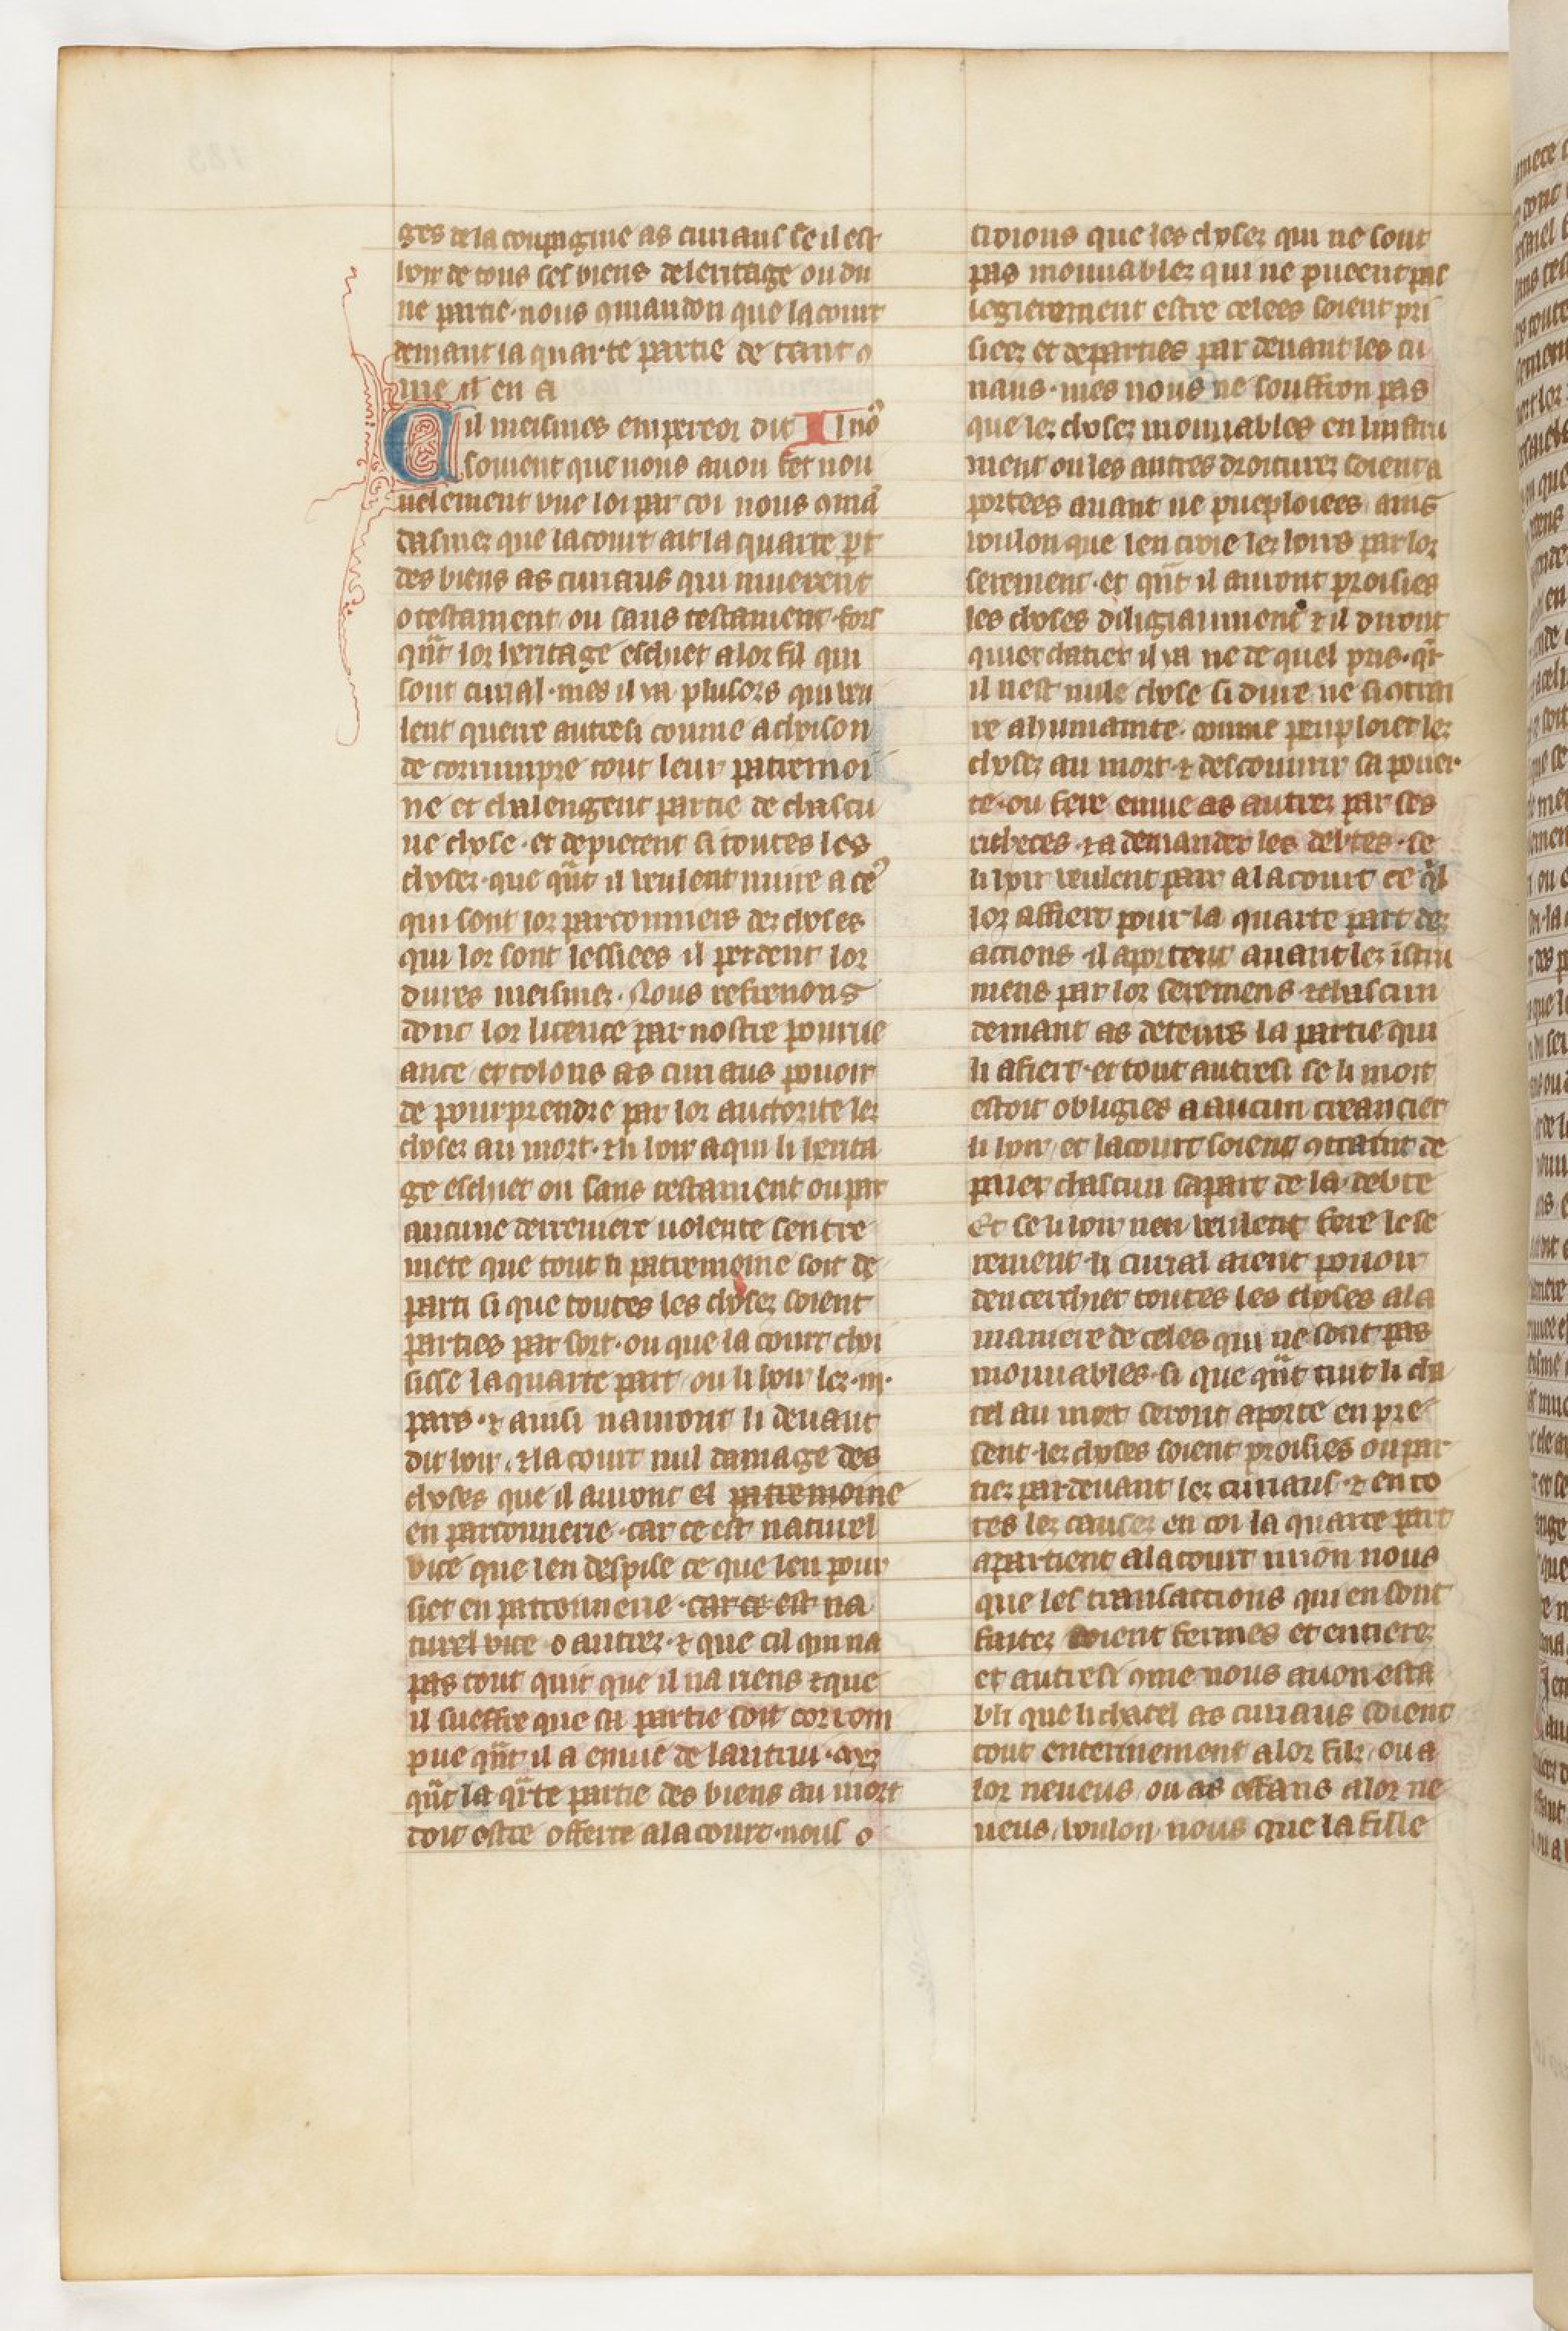 ges de la conpagnie as curiaus se il est
hoir de tous ses biens de leritage ou du
ne partie · nous 9mandon que la court
demant la quarte partie de tant 9
me il en a
Cil meismes empereor dit I l nõ
souient que nous auon fet nou
uelement vne loi par coi nous 9mã
dasmez que la court ait la quarte pt
des biens as curiaus qui muerent
o testament ou sans testament · fors
qñt lor leritage eschiet a lor fil qui
sont curial · mes il i a plusors qui veu
lent querre autresi comme achoison
de corrumpre tout leur patremoi
ne et chalengent partie de chascu
ne chose · et depiecent si toutes les
chosez · que qñt il veulent nuire a ce9
qui sont lor parconniers dez choses
qui lor sont lessiees il perdent lor
dures meismez · Nous refrenons
donc lor licence par nostre pourue
ance et tolons as curiaus pouoir
de pourprendre par lor auctorite lez
chosez au mort · et li hoir a qui li lerita
ge eschiet ou sans testament ou par
aucune derreniere uolente sentre
mete que tout li patremoine soit de
parti si que toutes les chosez soient
parties par sort · ou que la court choi
sisse la quarte part ou li hoir lez · iii ·
pars · et ainsi nauront li deuant
dit hoir et la court nul damage des
choses que il auront el patremoine
en parconnerie · car ce est naturel
vice que len despise ce que len pour
siet en parconnerie · car ce est na
turel vice o autrez · et que cil qui na
pas tout quit que il na riens et que
il sueffre que sa partie soit corrom
pue qñt il a enuie de lautrui · mez
qñt la qrte partie des biens au mort
doit estre offerte a la court · nous o
troions que les chosez qui ne sont
pas mouuablez qui ne pueent pas
legierement estre celees soient pri
siees et departies par deuant les cu
riaus · mes nous ne souffron pas
que lez chosez mouuables en linstru
ment ou les autres droiturez soient a
portees auant ne pueploiees ains
voulon que len croie lez hoirs par lor
serement · et qñt il auront proisies
les choses diligiaument et il diront
quier chatier il i a ne de quel pris · qr
il nest nule chose si dure ne si 9trai
re a humainte · comme peuploier lez
chosez au mort · et descouurir sa pouer
te · ou fere enuie as autrez par ses
richeces · et a demander les debtes · se
li hoir veulent paier a la court ce ql
lor affiert pour la quarte part dez
actions il aportent auant lez istru
mens par lor seremens et chascun
demant as deteurs la partie qui
li afiert · et tout autresi se li mort
estoit obligies a aucun creancier
li hoir et la court soient 9traint de
paier chascun sa part de la debte
Et se li hoir nen veulent fere le se
rement · li curial aient pouoir
dencerchier toutes les choses a la
maniere de celes qui ne sont pas
mouuables · si que qñt tuit li cha
tel au mort seront aporte en pre
sent · lez choses soient proisies ou par
tiez par deuant lez curiaus · et en to
tes lez causez en coi la quarte part
apartient a la court uuon nous
que les transactions qui en sont
faitez soient fermes et entierez
et autresi 9me nous auon esta
bli que li chatel as curiaus soient
tout enterinement a lor filz ou a
lor neueus ou as effans a lor ne
ueus voulon nous que la fille